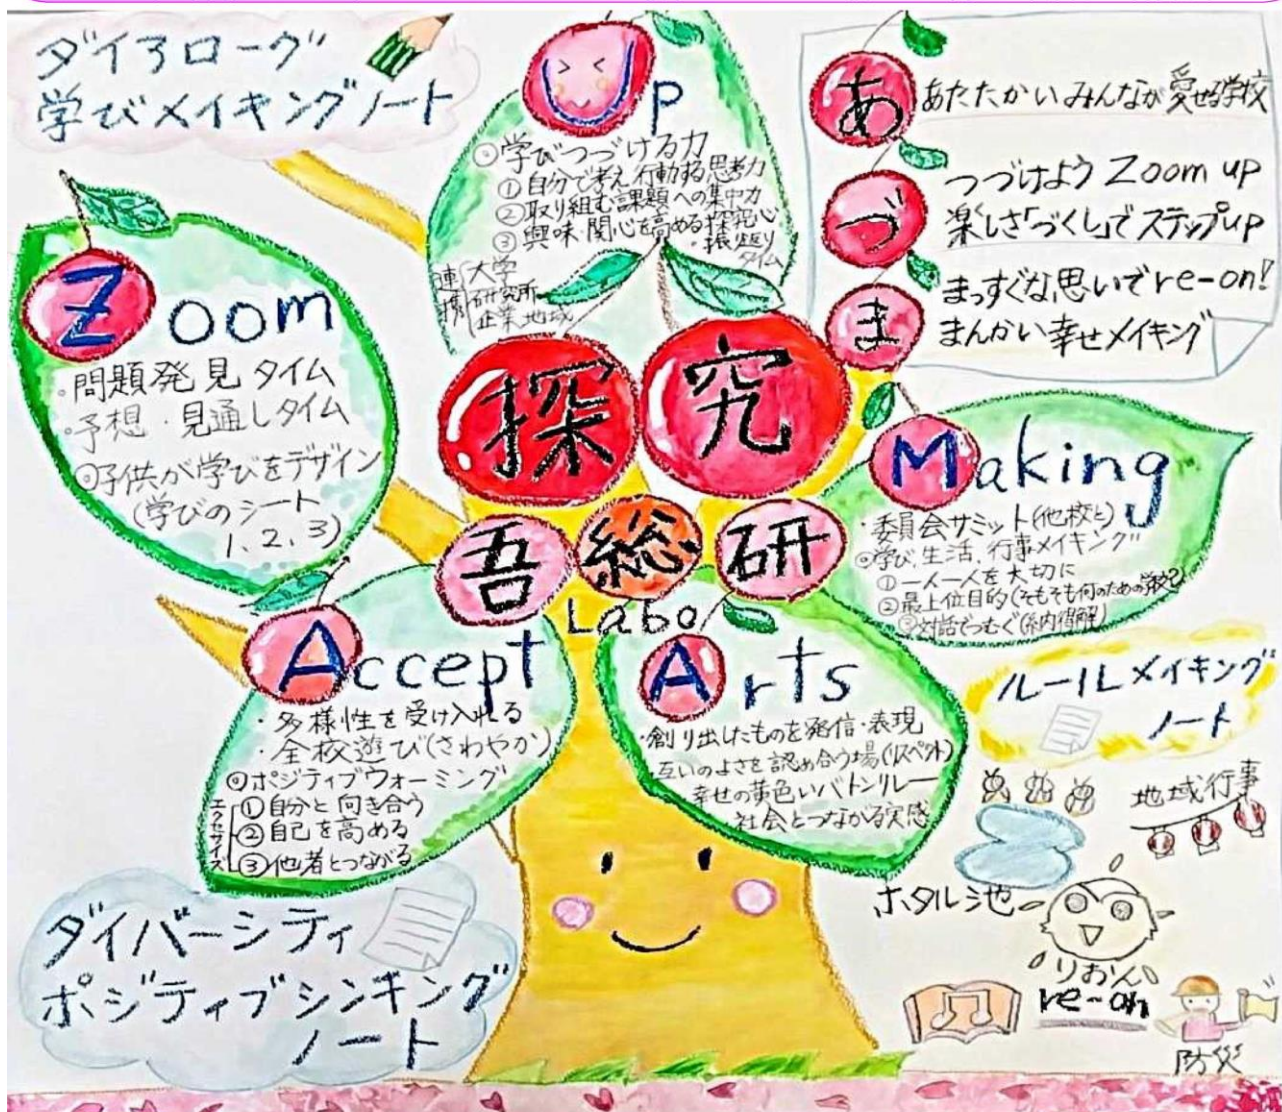 ダイアローグ
学びメイキングノート
Up
◎学びつづける力
①自分で考え行動する思考力
②取り組む課題への集中力
③興味・関心を高める探究心
・振り返り
タイム
連携
大学
研究所
企業 地域
あ
づ
ま
あたたかいみんなが愛せる学校
つづけよう Zoom up
楽しさ「づくし」でステップup
まっすぐな思いでre-on!
まんかい幸せメイキング
Zoom
・問題発見タイム
・予想・見通しタイム
◎子供が学びをデザイン
(学びのシート
1、2、3)
探究
吾総研
Labo
Making
・委員会サミット(他校と)
◎学び、生活、行事メイキング
①一人一人を大切に
②最上位目的(そもそも何のための
③対話でつむぐ(納得解)
Accept
・多様性を受け入れる
・全校遊び(さわやか)
◎ポジティブウォーミング
エクササイズ
①自分と向き合う
②自己を高める
③他者とつながる
Arts
・創り出したものを発信・表現
互いのよさを認め合う場(リスペクト)
幸せの黄色いバトンリレー
社会とつながる実感
ルールメイキング
ノート
地域行事
ホタル池
りおん
re-on
防災
ダイバーシティ
ポジティブシンキング
ノート